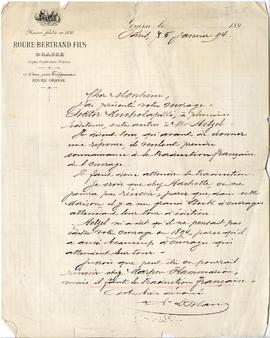 Maison fondée en 1820
ROURE-BERTRAND FILS
GRASSE
189
Paris, 25 janvier 94.
Cher Monsieur,
J'ai présenté votre ouvrage
Doktor à plusieurs
éditeurs, entre autres à Mr Hetzel
Ils disent tous qu'avant de donner
une réponse ils veulent prendre
connaissance de la traduction française
de l'ouvrage.
Il faut donc attendre la traduction.
Je crois que chez Hachette on ne
pourra pas réussir, parce que dans cette
maison il y a un grand stock d'ouvrages
attendant leur tour d'édition.
Hetzel m'a dit qu'il ne pouvait pas
éditer votre ouvrage en 1894, parce qu'il
a aussi beaucoup d'ouvrages qui
attendent leur tour.
Je crois que peut être on pourrait
réussir chez Marpon Flammarion,
mais il faut la traduction française.